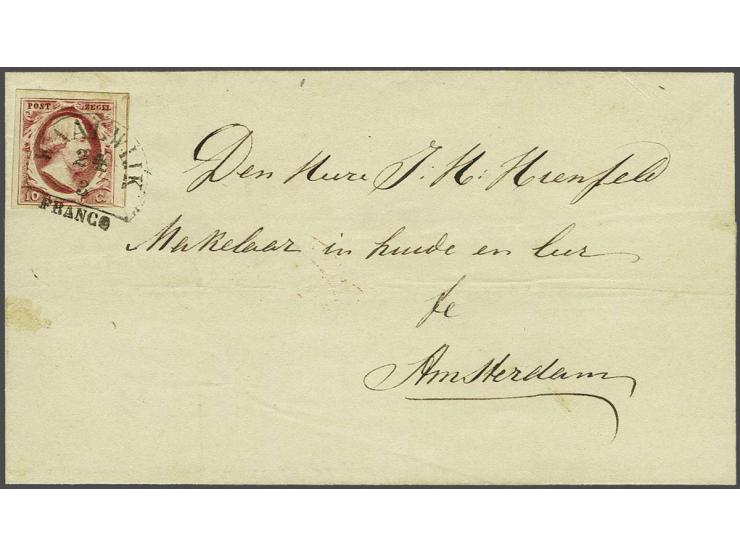 POST ZEGEL
WAALWIJK
24
3
10 C.
FRANCO
Den Heere J: H: Hienfeld
Makelaar in huide en leer
te
Amsterdam